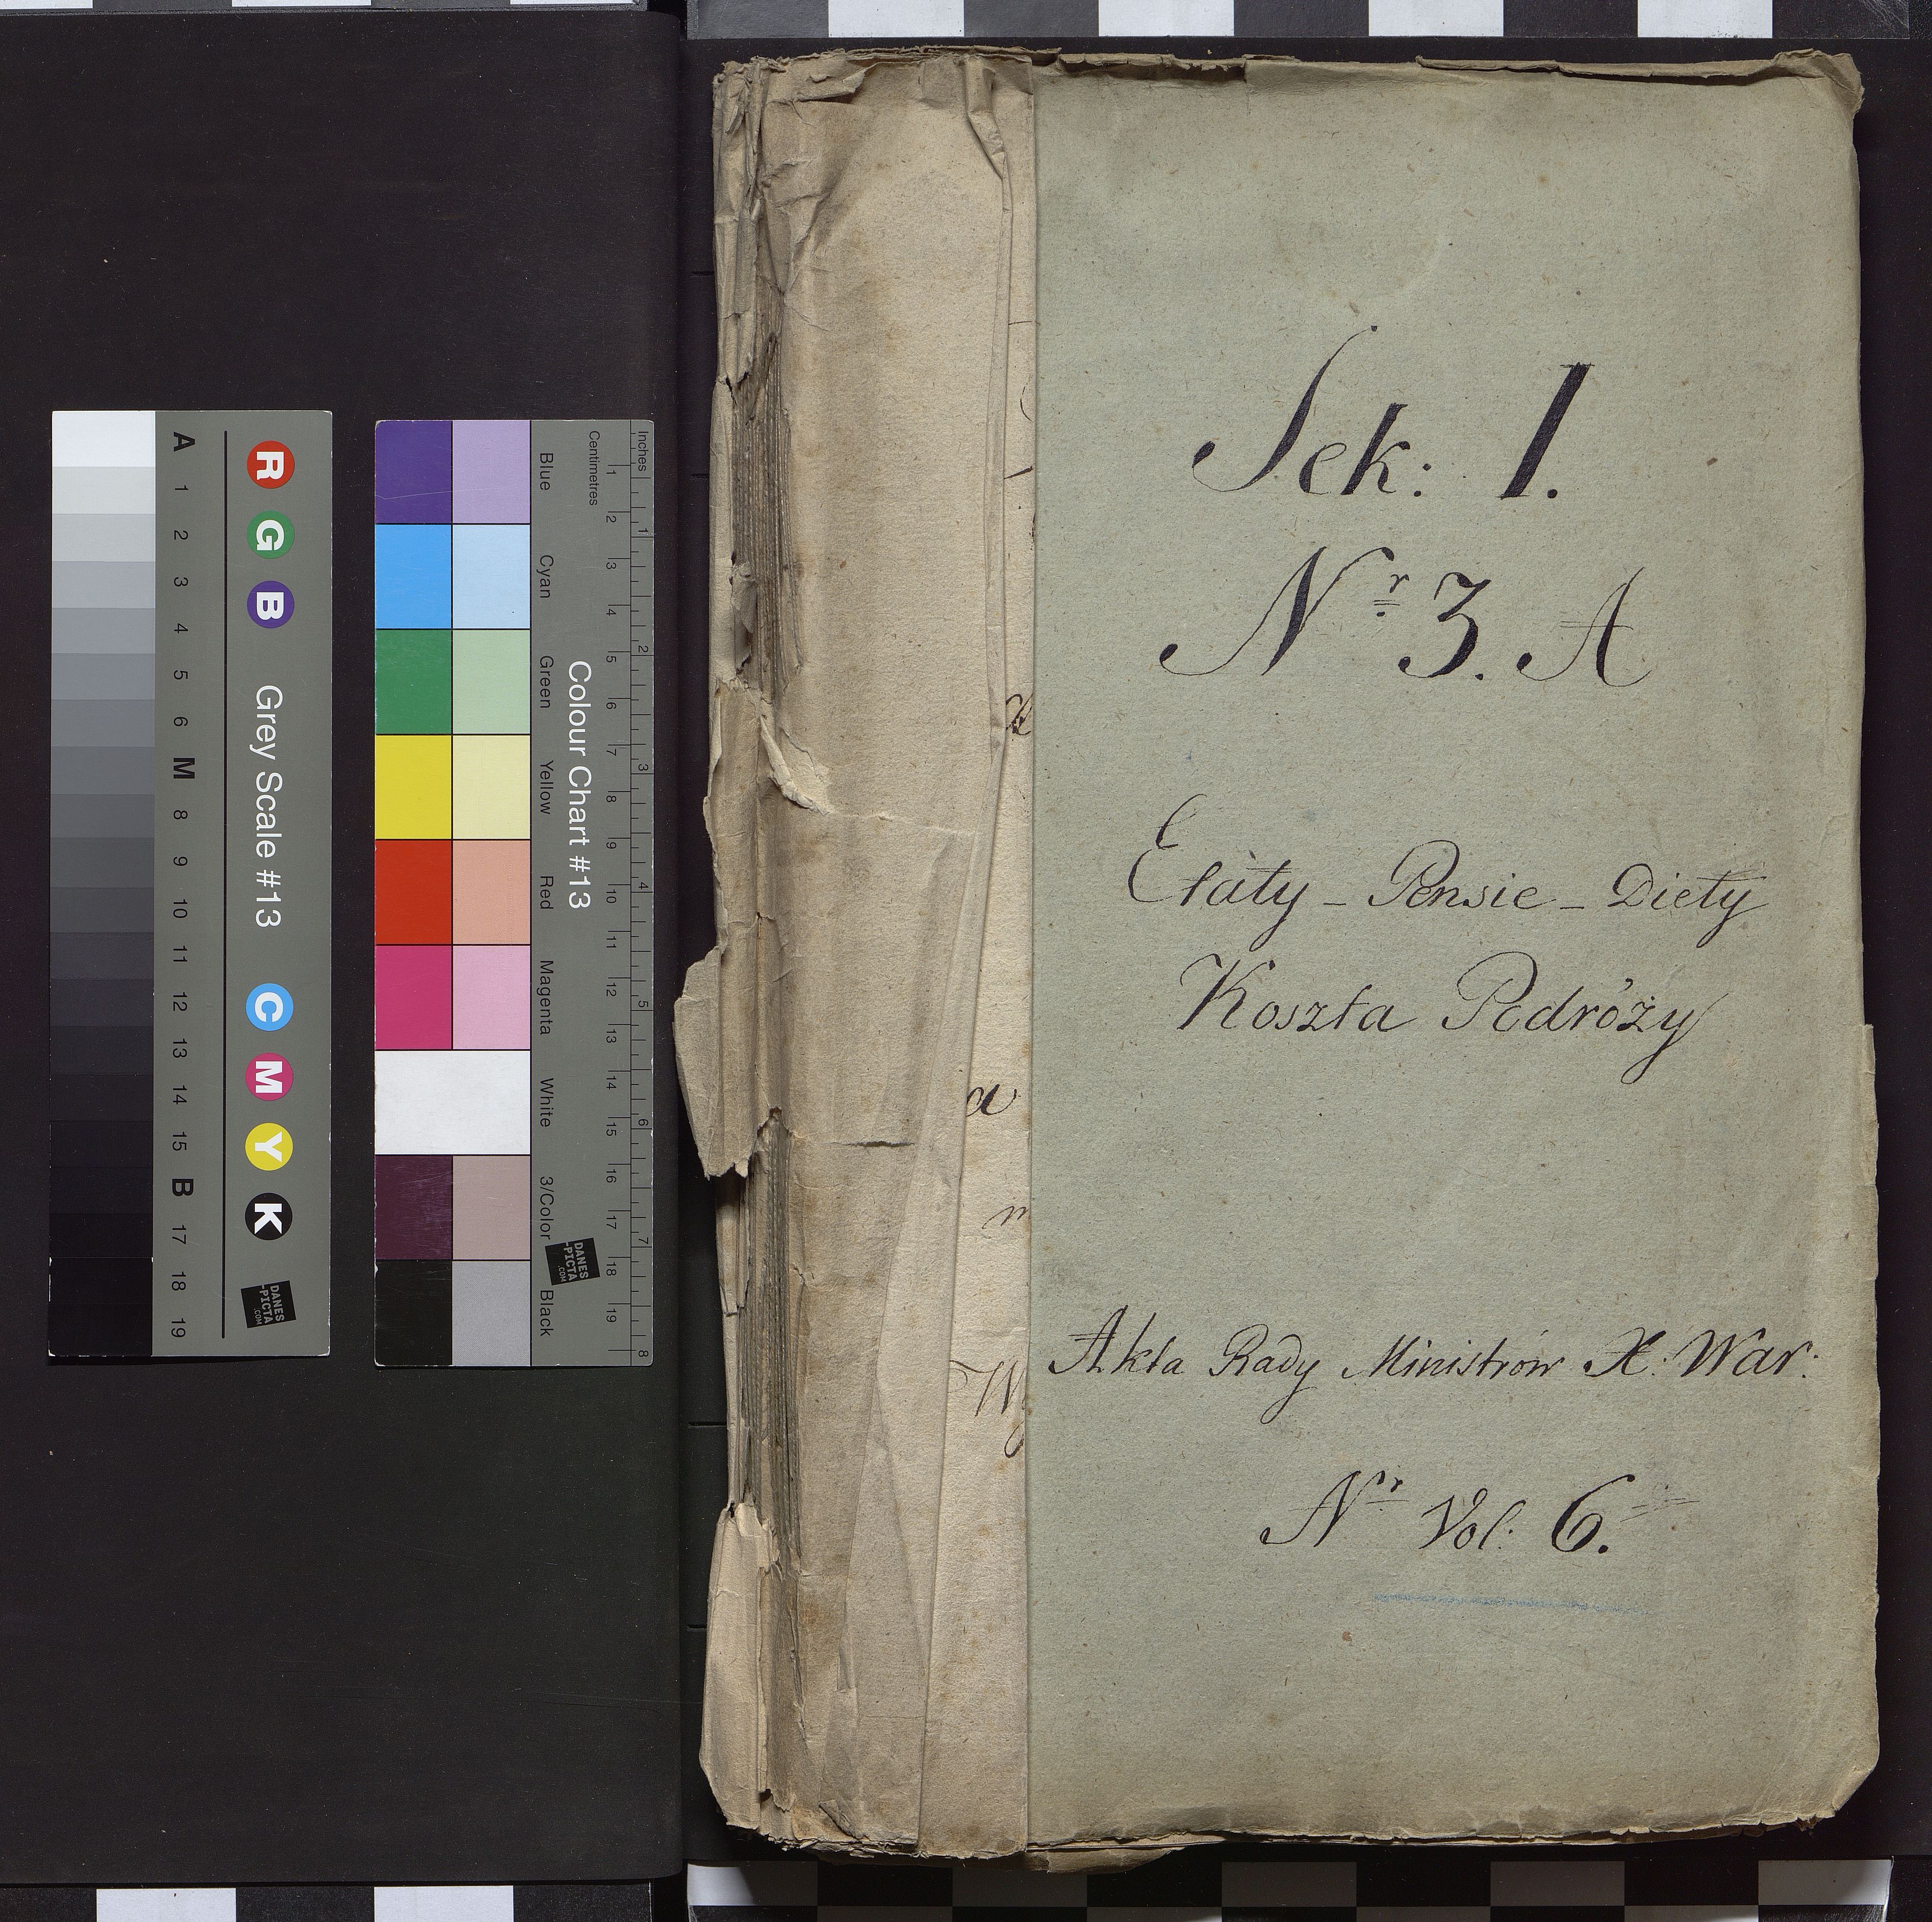 Sek: 1.
Nr 3. A
Etaty - Pensie - Diety
Koszta Podróży
Akta Rady Ministrów X: War:
Nr Vol: 6.
a
m
W
A 1 2 3 4 5 6 M 8 9 10 11 12 13 14 15 B 17 18 19
R G B Grey Scale #13 C M Y K
DANES
-PICTA
.COM
Blue Cyan Green Yellow Red Magenta White 3/Color Black
Colour Chart #13
DANES
-PICTA
.COM
Centimetres 1 2 3 4 5 6 7 8 9 10 11 12 13 14 15 16 17 18 19
Inches 1 2 3 4 5 6 7 8